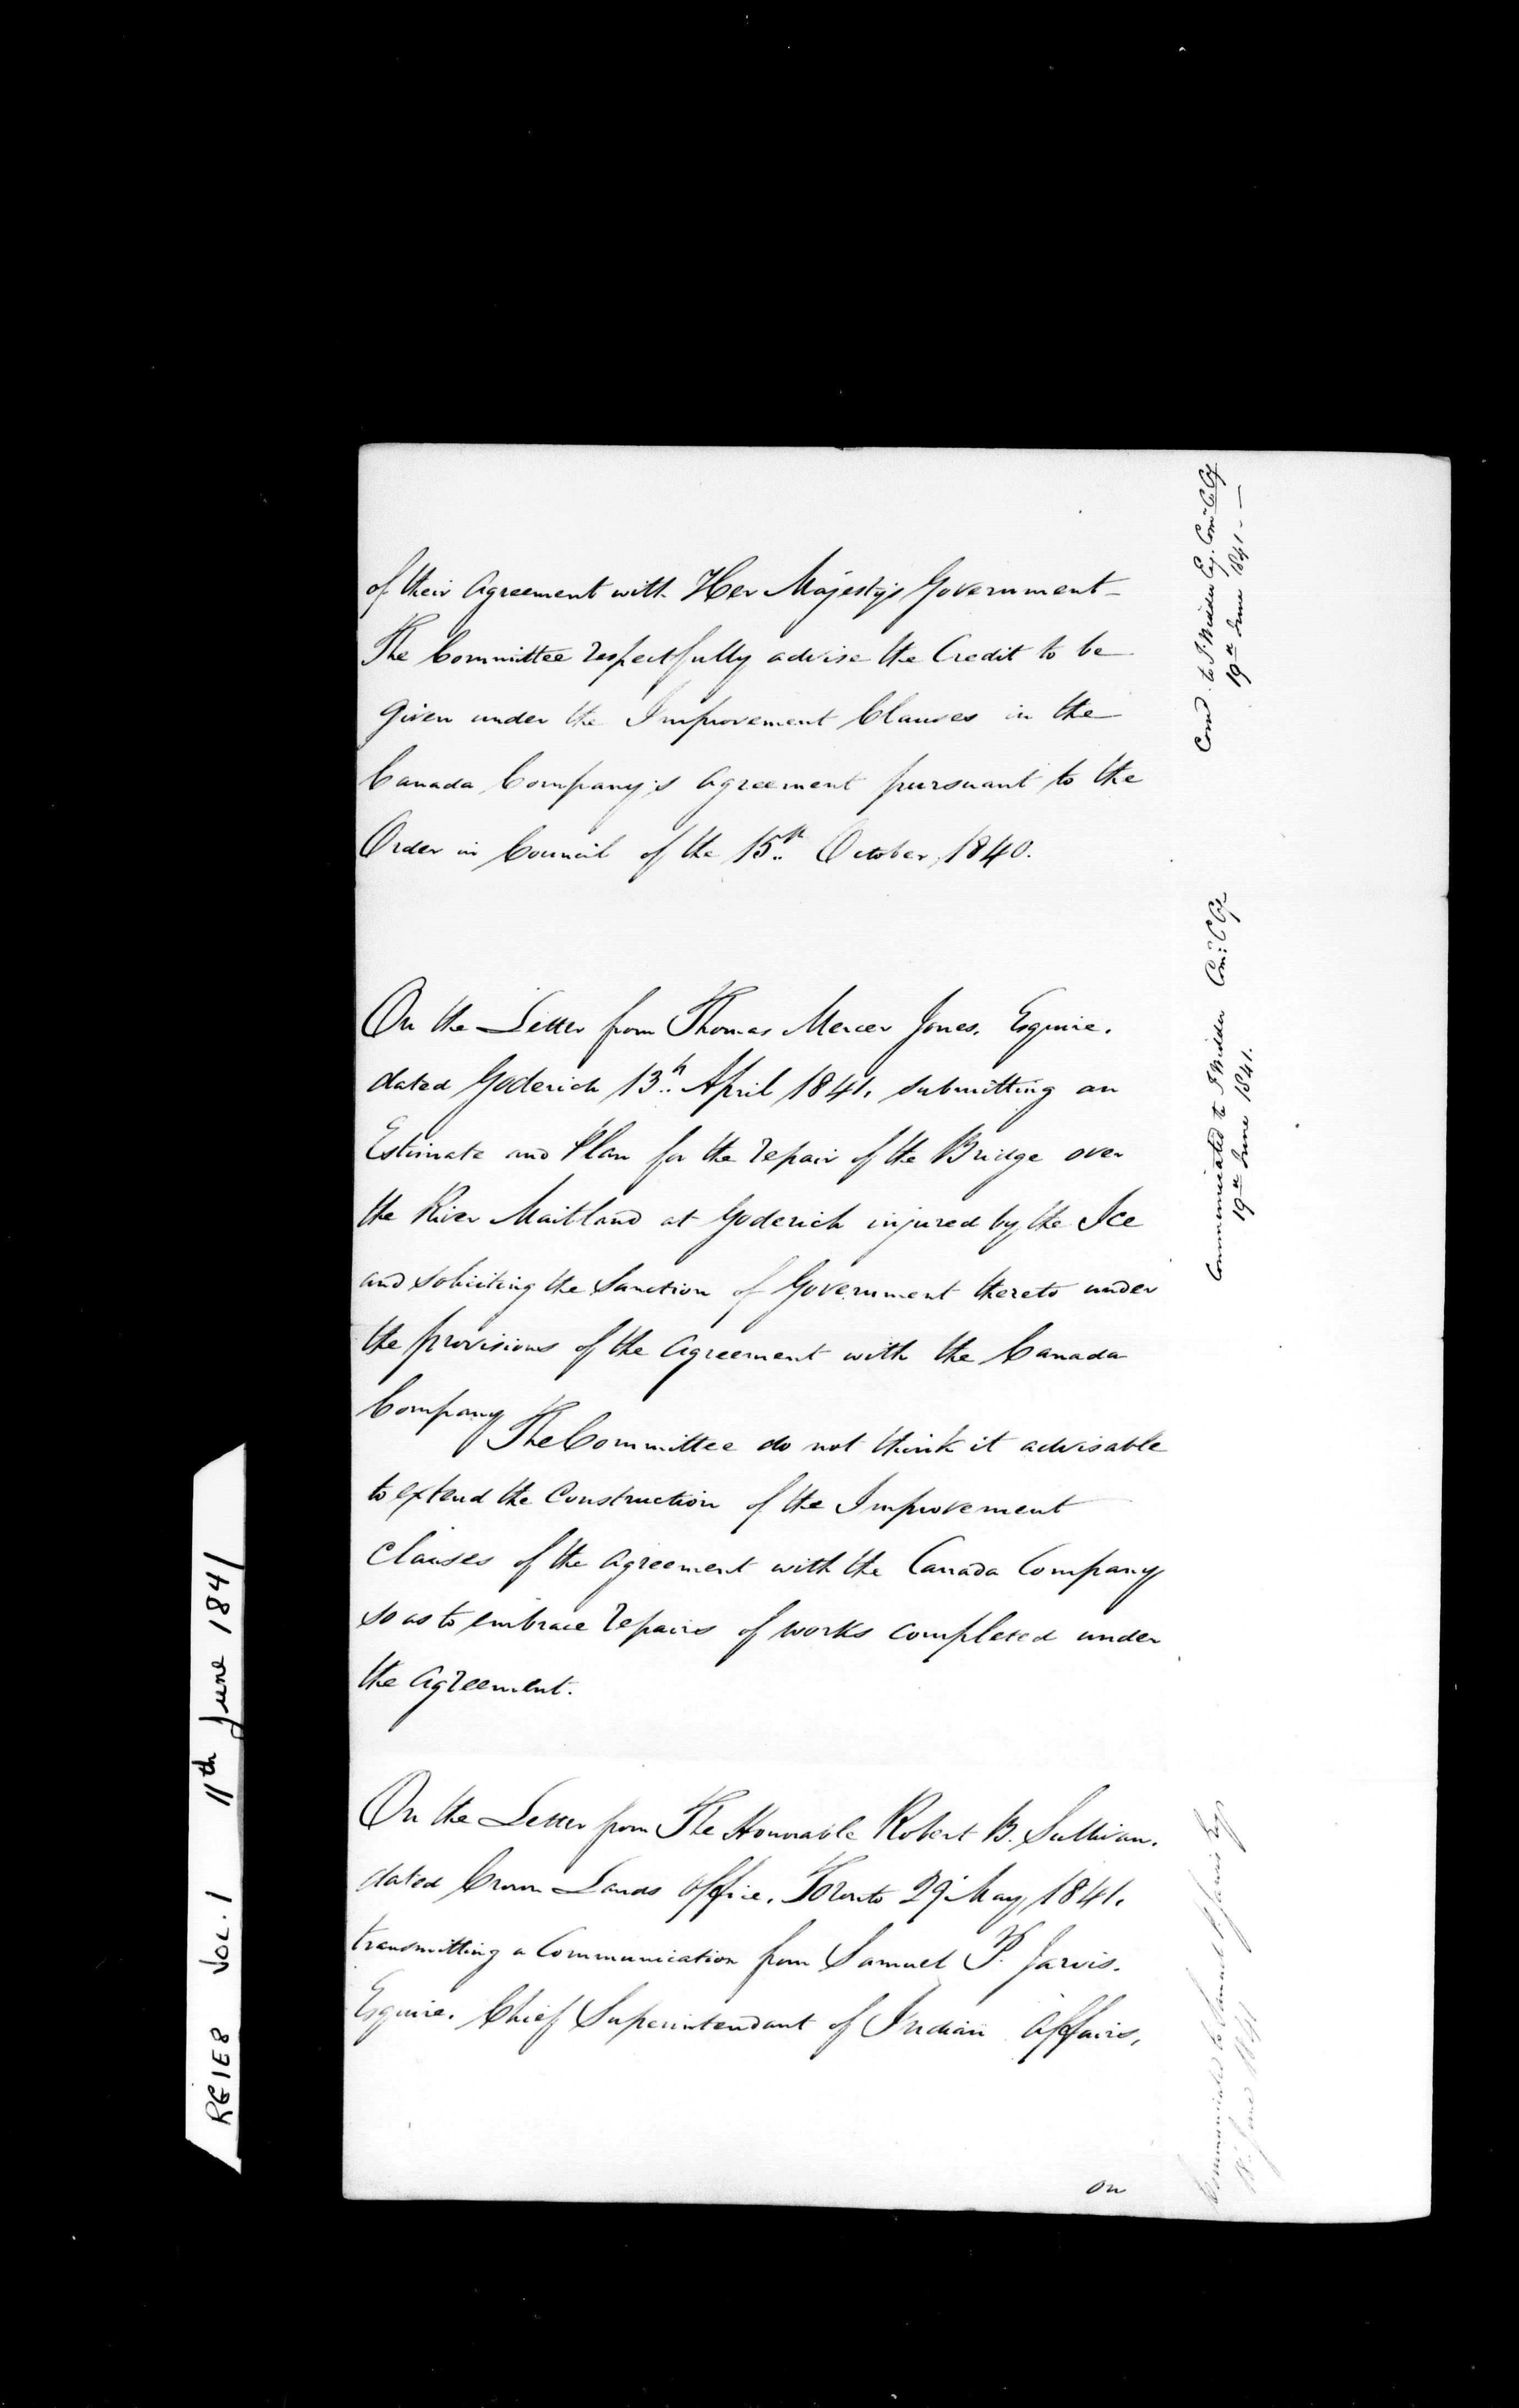 of their Agreement with Her Majesty's Government –
The Committee respectfully advise the Credit to be
given under the Improvement Clauses in the
Canada Company's Agreement pursuant to the
Order in Council of the 15th October, 1840.
Comd to F. Widder Esq. Comr C. Cy
19th June 1841 – –
On the Letter from Thomas Mercer Jones, Esquire.
dated Goderich 13th April 1841, submitting an
Estimate and Plan for the repair of the Bridge over
the River Maitland at Goderich injured by the Ice
and soliciting the Sanction of Government thereto under
the provisions of the Agreement with the Canada
Company
The Committee do not think it advisable
to extend the Construction of the Improvement
Clauses of the Agreement with the Canada Company
so as to embrace repairs of works completed under
the Agreement.
Communicated to F. Widder Comr C Cy
19th June 1841.
On the Letter from The Honorable Robert B. Sullivan.
dated Crown Lands Office, Toronto 29 May, 1841.
transmitting a Communication from Samuel P. Jarvis.
Esquire. Chief Superintendant of Indian Affairs,
Communicated to Samuel P Jarvis Esq
18 June 1841
on
RG1E8 VOL. 1 11th June 1841